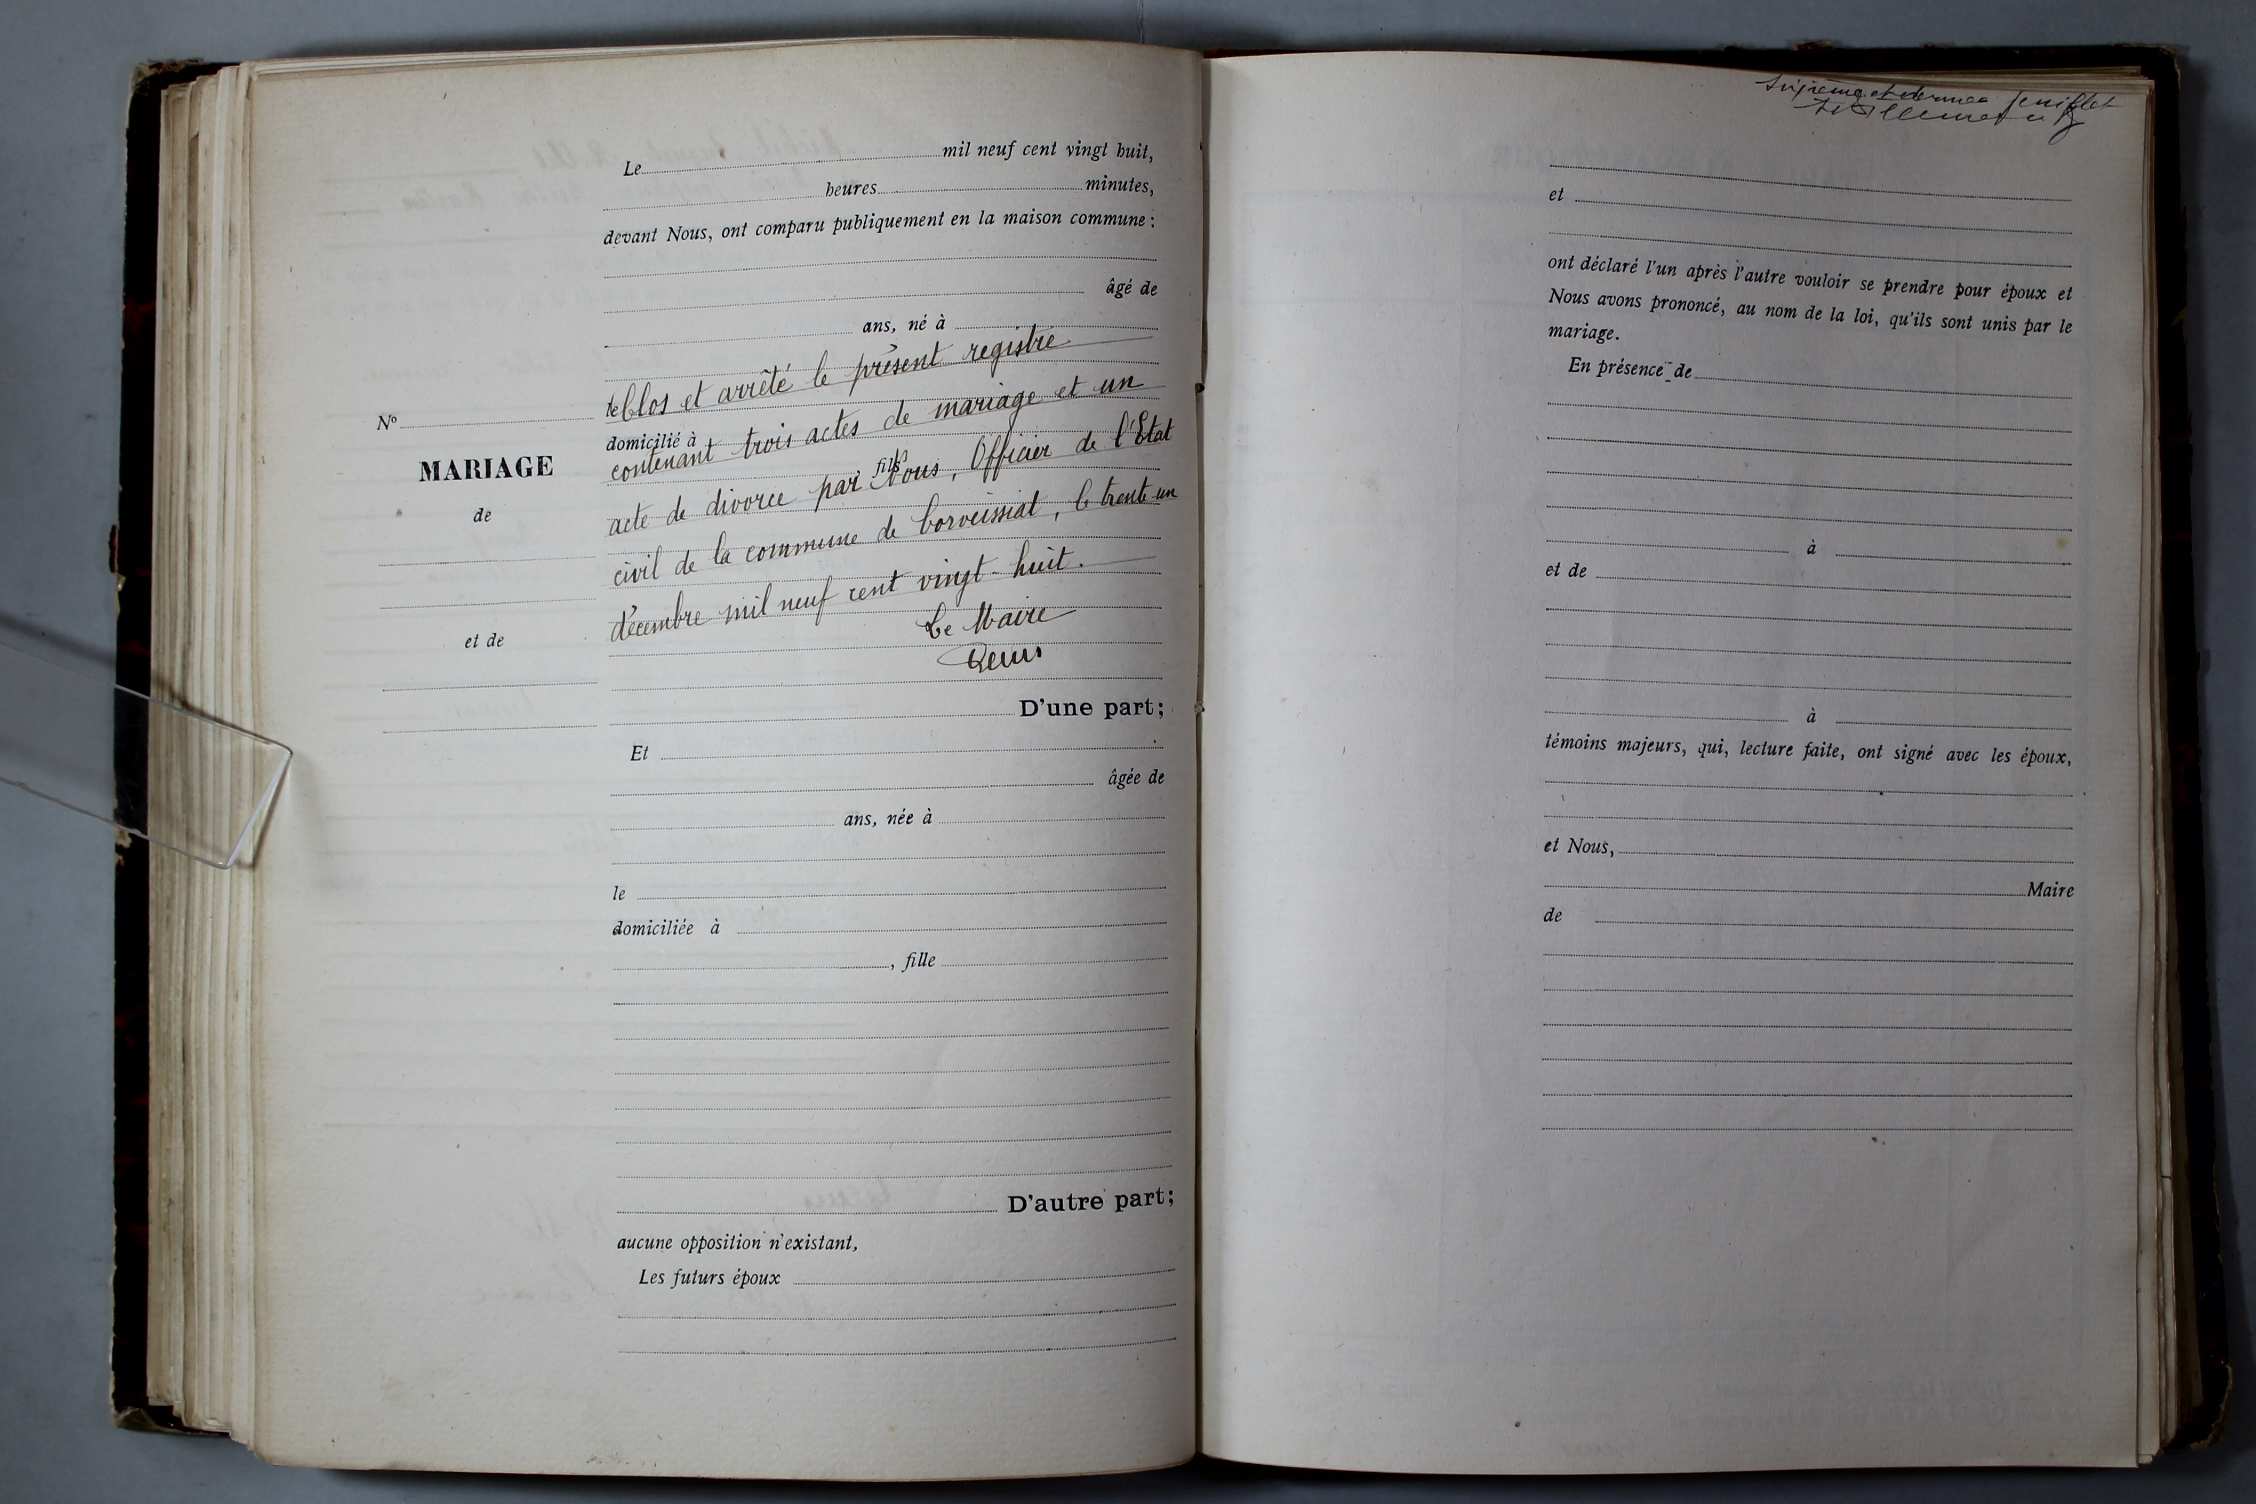 Le mil neuf cent vingt huit,
heures minutes,
devant Nous, ont comparu publiquement en la maison commune :
âgé de
ans, né à
le Clos et arrêté le présent registre
domicilié à
contenant trois actes de mariage et un
fils
acte de divorce par Nous, Officier de l'Etat
civil de la commune de Corveissiat, le trente-un
décembre mil neuf cent vingt-huit.
Le Maire
D'une part;
Et
âgée de
ans, née à
le
domiciliée à
, fille
D'autre part;
aucune opposition n'existant,
Les futurs époux
No
MARIAGE
de
et de
et dernier feuillet
et
ont déclaré l'un après l'autre vouloir se prendre pour époux et
Nous avons prononcé, au nom de la loi, qu'ils sont unis par le
mariage.
En présence de
à
et de
à
témoins majeurs, qui, lecture faite, ont signé avec les époux,
et Nous,
Maire
de